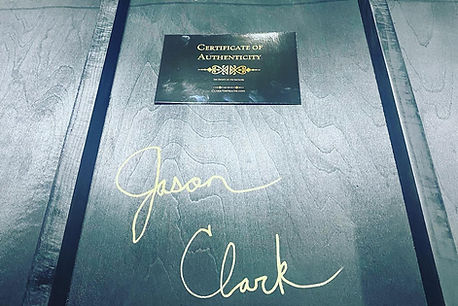 CERTIFICATE OF
AUTHENTICITY
Jason
Clark